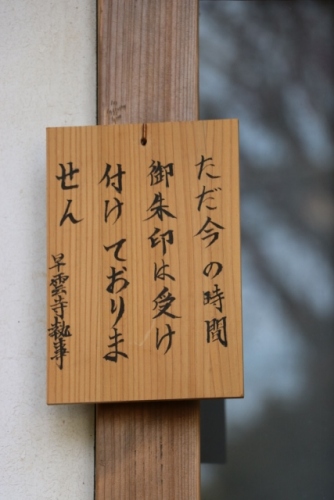 ただ今の時間
御朱印は受け
付けておりま
せん
早雲寺執事